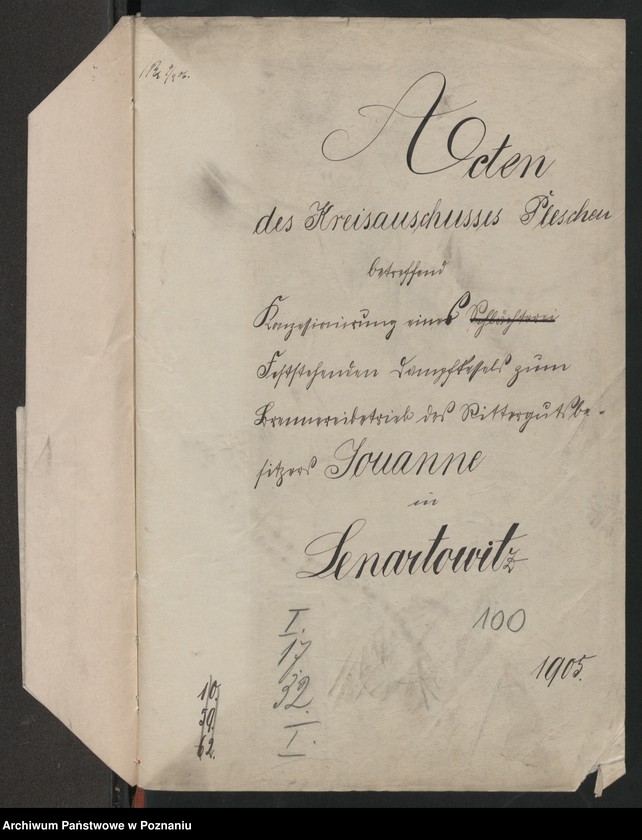 Acten
des Kreisausschusses Pleschen
betreffend
Konzessionierung eines Schlächterei
Feststehenden Dampfkessels zum
Brennereibetrieb des Rittergutsbe-
sitzers Jouanne
in
Lenartowitz
100
1905.
I.
17
32.
I.
10
39
62.
Archiwum Państwowe w Poznaniu